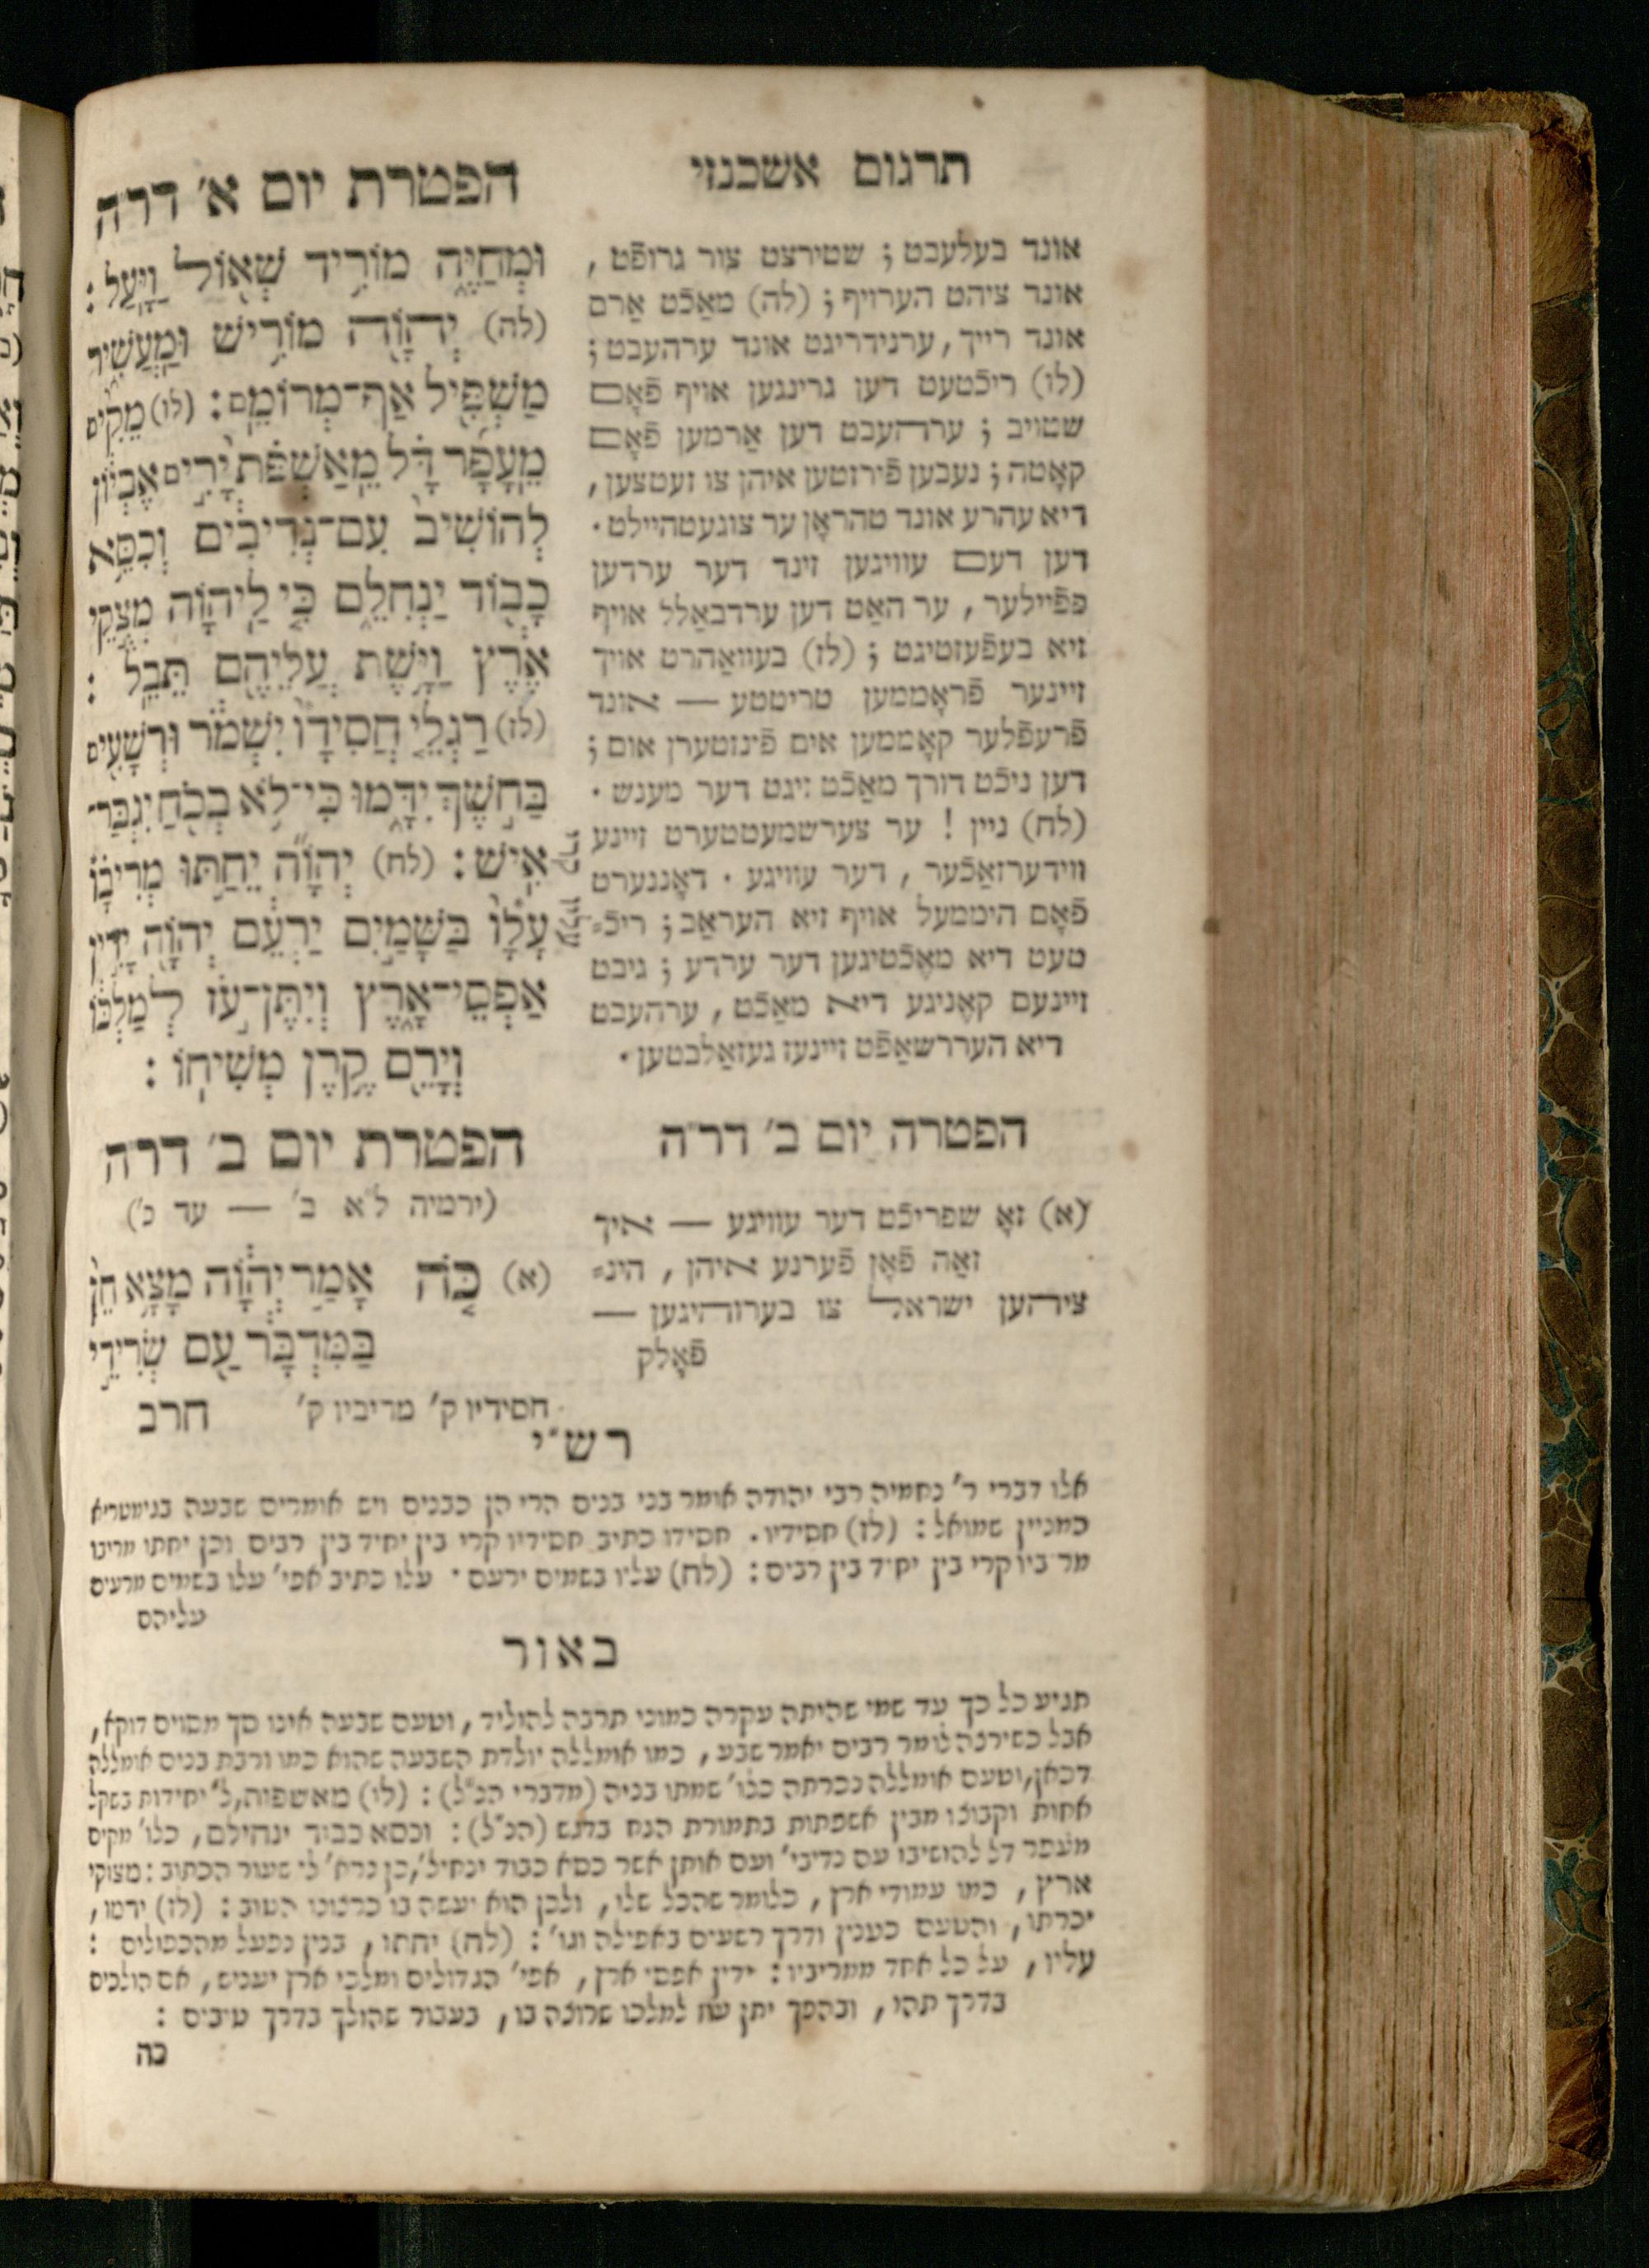 תרגום אשכנזי
אונד בעלעבט ; שטירצט צור גרופֿט ,
אונד ציהט הערויף ; (לה) מאַכֿט אַרם
אונד רייך , ערנידריגט אונד ערהעבט ;
(לו) ריכֿטעט דען גרינגען אויף פֿאָם
שטויב ; ערהעבט דען אַרמען פֿאָם
קאָטה ; נעבען פֿירזטען איהן צו זעטצען ,
דיא עהרע אונד טהראָן ער צוגעטהיילט .
דען דעם עוויגען זינד דער ערדען
פפֿיילער , ער האַט דען ערדבאַלל אויף
זיא בעפֿעזטיגט ; (לז) בעוואַהרט אויך
זיינער פֿראָממען טריטטע — אונד
פֿרעפֿלער קאָממען אים פֿינזטערן אום ;
דען ניכֿט דורך מאַכֿט זיגט דער מענש .
(לח) ניין ! ער צערשמעטטערט זיינע
ווידערזאַכֿער , דער עוויגע . דאָננערט
פֿאָם היממעל אויף זיא העראַב ; ריכֿ=
טעט דיא מאֶכֿטיגען דער ערדע ; גיבט
זיינעם קאֶניגע דיא מאַכֿט , ערהעבט
דיא העררשאַפֿט זיינעז געזאַלבטען .
הפטרה יום ב׳ דר״ה
(א) זאָ שפריכֿט דער עוויגע — איך
זאַה פֿאָן פֿערנע איהן , הינ=
ציהען ישראל צו בערוהיגען —
פֿאָלק
הפטרת יום א׳ דר״ה
וּמְחַיֶּה מוֹרִיד שְׁאוֹל וַיָּעַל :
(לה) יְהוָה מוֹרִישׁ וּמַעֲשִׁיר
מַשְׁפִּיל אַף־מְרוֹמֵם : (לו) מֵקִים
מֵעָפָר דָּל מֵאַשְׁפֹּת יָרִים אֶבְיוֹן
לְהוֹשִׁיב עִם־נְדִיבִים וְכִסֵּא
כָבוֹד יַנְחִלֵם כִּי לַיהוָה מְצֻקֵי
אֶרֶץ וַיָּשֶׁת עֲלֵיהֶם תֵּבֵל :
(לז) רַגְלֵי חֲסִידָו יִשְׁמֹר וּרְשָׁעִים
בַּחֹשֶׁךְ יִדָּמּוּ כִּי־לֹא בְכֹחַ יִגְבַּר־
אִישׁ : (לח) יְהוָה יֵחַתּוּ מְרִיבָו
עָלָו בַּשָּׁמַיִם יַרְעֵם יְהוָה יָדִין
אַפְסֵי־אָרֶץ וְיִתֶּן־עֹז לְמַלְכּוֹ
וְיָרֵם קֶרֶן מְשִׁיחוֹ :
הפטרת יום ב׳ דר״ה
(ירמיה ל״א ב׳ — עד כ׳)
(א) כֹּה אָמַר יְהוָה מָצָא חֵן
בַּמִּדְבָּר עַם שְׂרִידֵי
חסידיו ק׳ מריביו ק׳ חרב
רש״י
אלו דברי ר׳ נחמיה רבי יהודה אומר בני בנים הרי הן כבנים ויש אומרים שבעה בגימטריא
כמניין שמואל : (לז) חסידיו . חסידו כתיב חסידיו קרי בין יחיד בין רבים וכן יחתו מריבו
מריביו קרי בין יחיד בין רבים : (לח) עליו בשמים ירעם . עלו כתיב אפי׳ עלו בשמים מרעים
עליהם
באור
תגיע כל כך עד שמי שהיתה עקרה כמוני תרבה להוליד , וטעם שבעה אינו סך מסוים דוקא ,
אבל כשירצה לומר רבים יאמר שבע , כמו אומללה יולדת השבעה שהוא כמו ורבת בנים אומללה
דכאן , וטעם אומללה נכרתה כלו׳ שמתו בניה (מדברי הנ״ל) : (לו) מאשפות , ל׳ יחידות בשקל
אחות וקבוצו מבין אשפתות בתמורת הנח בדגש (הנ״ל) : וכסא כבוד ינחילם , כלו׳ מקים
מעפר דל להושיבו עם נדיבי׳ ועם אותן אשר כסא כבוד ינחיל׳ , כן נרא׳ לי שעור הכתוב : מצוקי
ארץ , כמו עמודי ארץ , כלומר שהכל שלו , ולכן הוא יעשה בו כרצונו הטוב : (לז) ידמו ,
יכרתו , והטעם כענין ודרך רשעים באפילה וגו׳ : (לח) יחתו , בנין נפעל מהכפולים :
עליו , על כל אחד ממריביו : ידין אפסי ארץ , אפי׳ הגדולים ומלכי ארץ יעניש , אם הולכים
בדרך תהו , ובהפך יתן עוז למלכו שרוצה בו , בעבור שהולך בדרך טובים :
כה